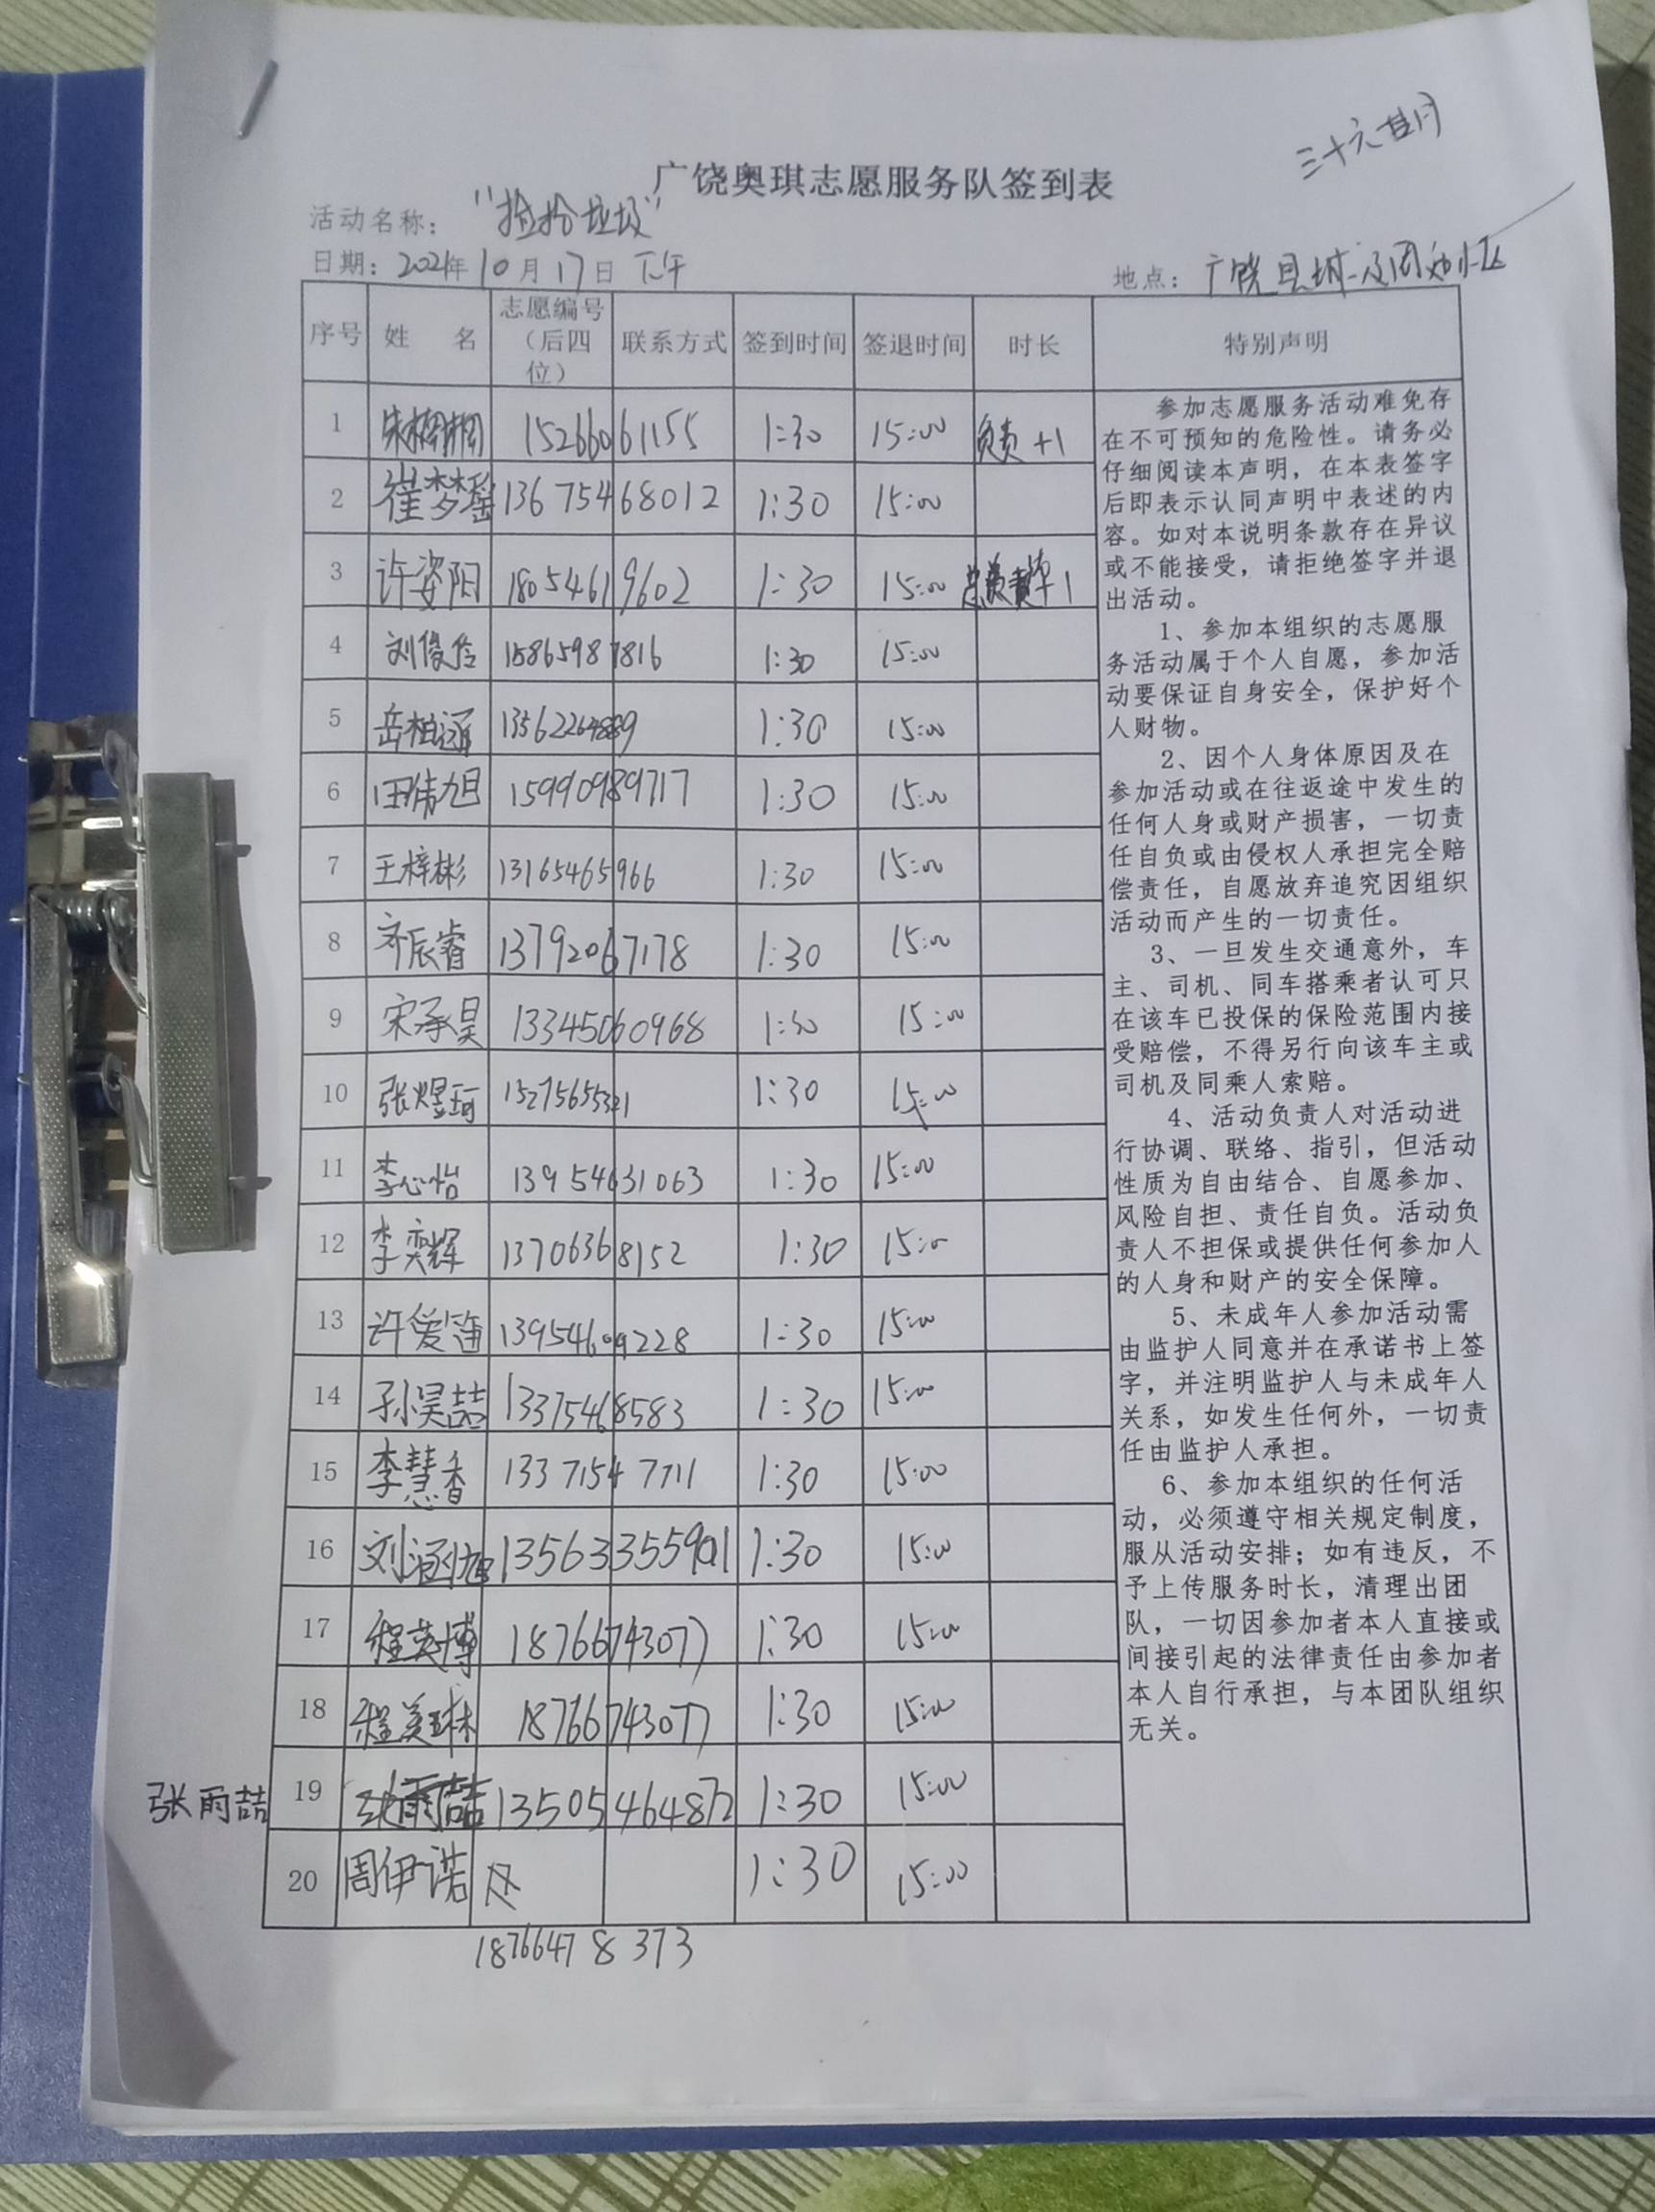 三十六
广饶奥琪志愿服务队签到表
活动名称："捡拾垃圾"
日期：2021年10月17日 下午 地点：广饶县城及周边小区
序号 姓 名 志愿编号（后四位） 联系方式 签到时间 签退时间 时长 特别声明
1 朱栩栩 15266061155 1:30 15:00 负责+1
2 崔梦瑶 13675468012 1:30 15:00
3 许姿阳 18054619602 1:30 15:00
4 刘俊 15865987816 1:30 15:00
5 岳柏 1:30 15:00
6 田伟旭 15990989717 1:30 15:00
7 王梓彬 13165465966 1:30 15:00
8 齐辰睿 13792067178 1:30 15:00
9 宋承昊 13345060968 1:30 15:00
10 张煜珂 1:30 15:00
11 李心怡 13954631063 1:30 15:00
12 李奕辉 13706368152 1:30 15:00
13 许爱笛 13954609228 1:30 15:00
14 孙昊喆 13375468583 1:30 15:00
15 李慧香 13371547711 1:30 15:00
16 刘涵旭 1:30 15:00
17 程英博 18766743077 1:30 15:00
18 程美琳 18766743077 1:30 15:00
张雨喆 19 张雨喆 13505464872 1:30 15:00
20 周伊诺 1:30 15:00
18766478373
参加志愿服务活动难免存
在不可预知的危险性。请务必
仔细阅读本声明，在本表签字
后即表示认同声明中表述的内
容。如对本说明条款存在异议
或不能接受，请拒绝签字并退
出活动。
1、参加本组织的志愿服
务活动属于个人自愿，参加活
动要保证自身安全，保护好个
人财物。
2、因个人身体原因及在
参加活动或在往返途中发生的
任何人身或财产损害，一切责
任自负或由侵权人承担完全赔
偿责任，自愿放弃追究因组织
活动而产生的一切责任。
3、一旦发生交通意外，车
主、司机、同车搭乘者认可只
在该车已投保的保险范围内接
受赔偿，不得另行向该车主或
司机及同乘人索赔。
4、活动负责人对活动进
行协调、联络、指引，但活动
性质为自由结合、自愿参加、
风险自担、责任自负。活动负
责人不担保或提供任何参加人
的人身和财产的安全保障。
5、未成年人参加活动需
由监护人同意并在承诺书上签
字，并注明监护人与未成年人
关系，如发生任何外，一切责
任由监护人承担。
6、参加本组织的任何活
动，必须遵守相关规定制度，
服从活动安排；如有违反，不
予上传服务时长，清理出团
队，一切因参加者本人直接或
间接引起的法律责任由参加者
本人自行承担，与本团队组织
无关。